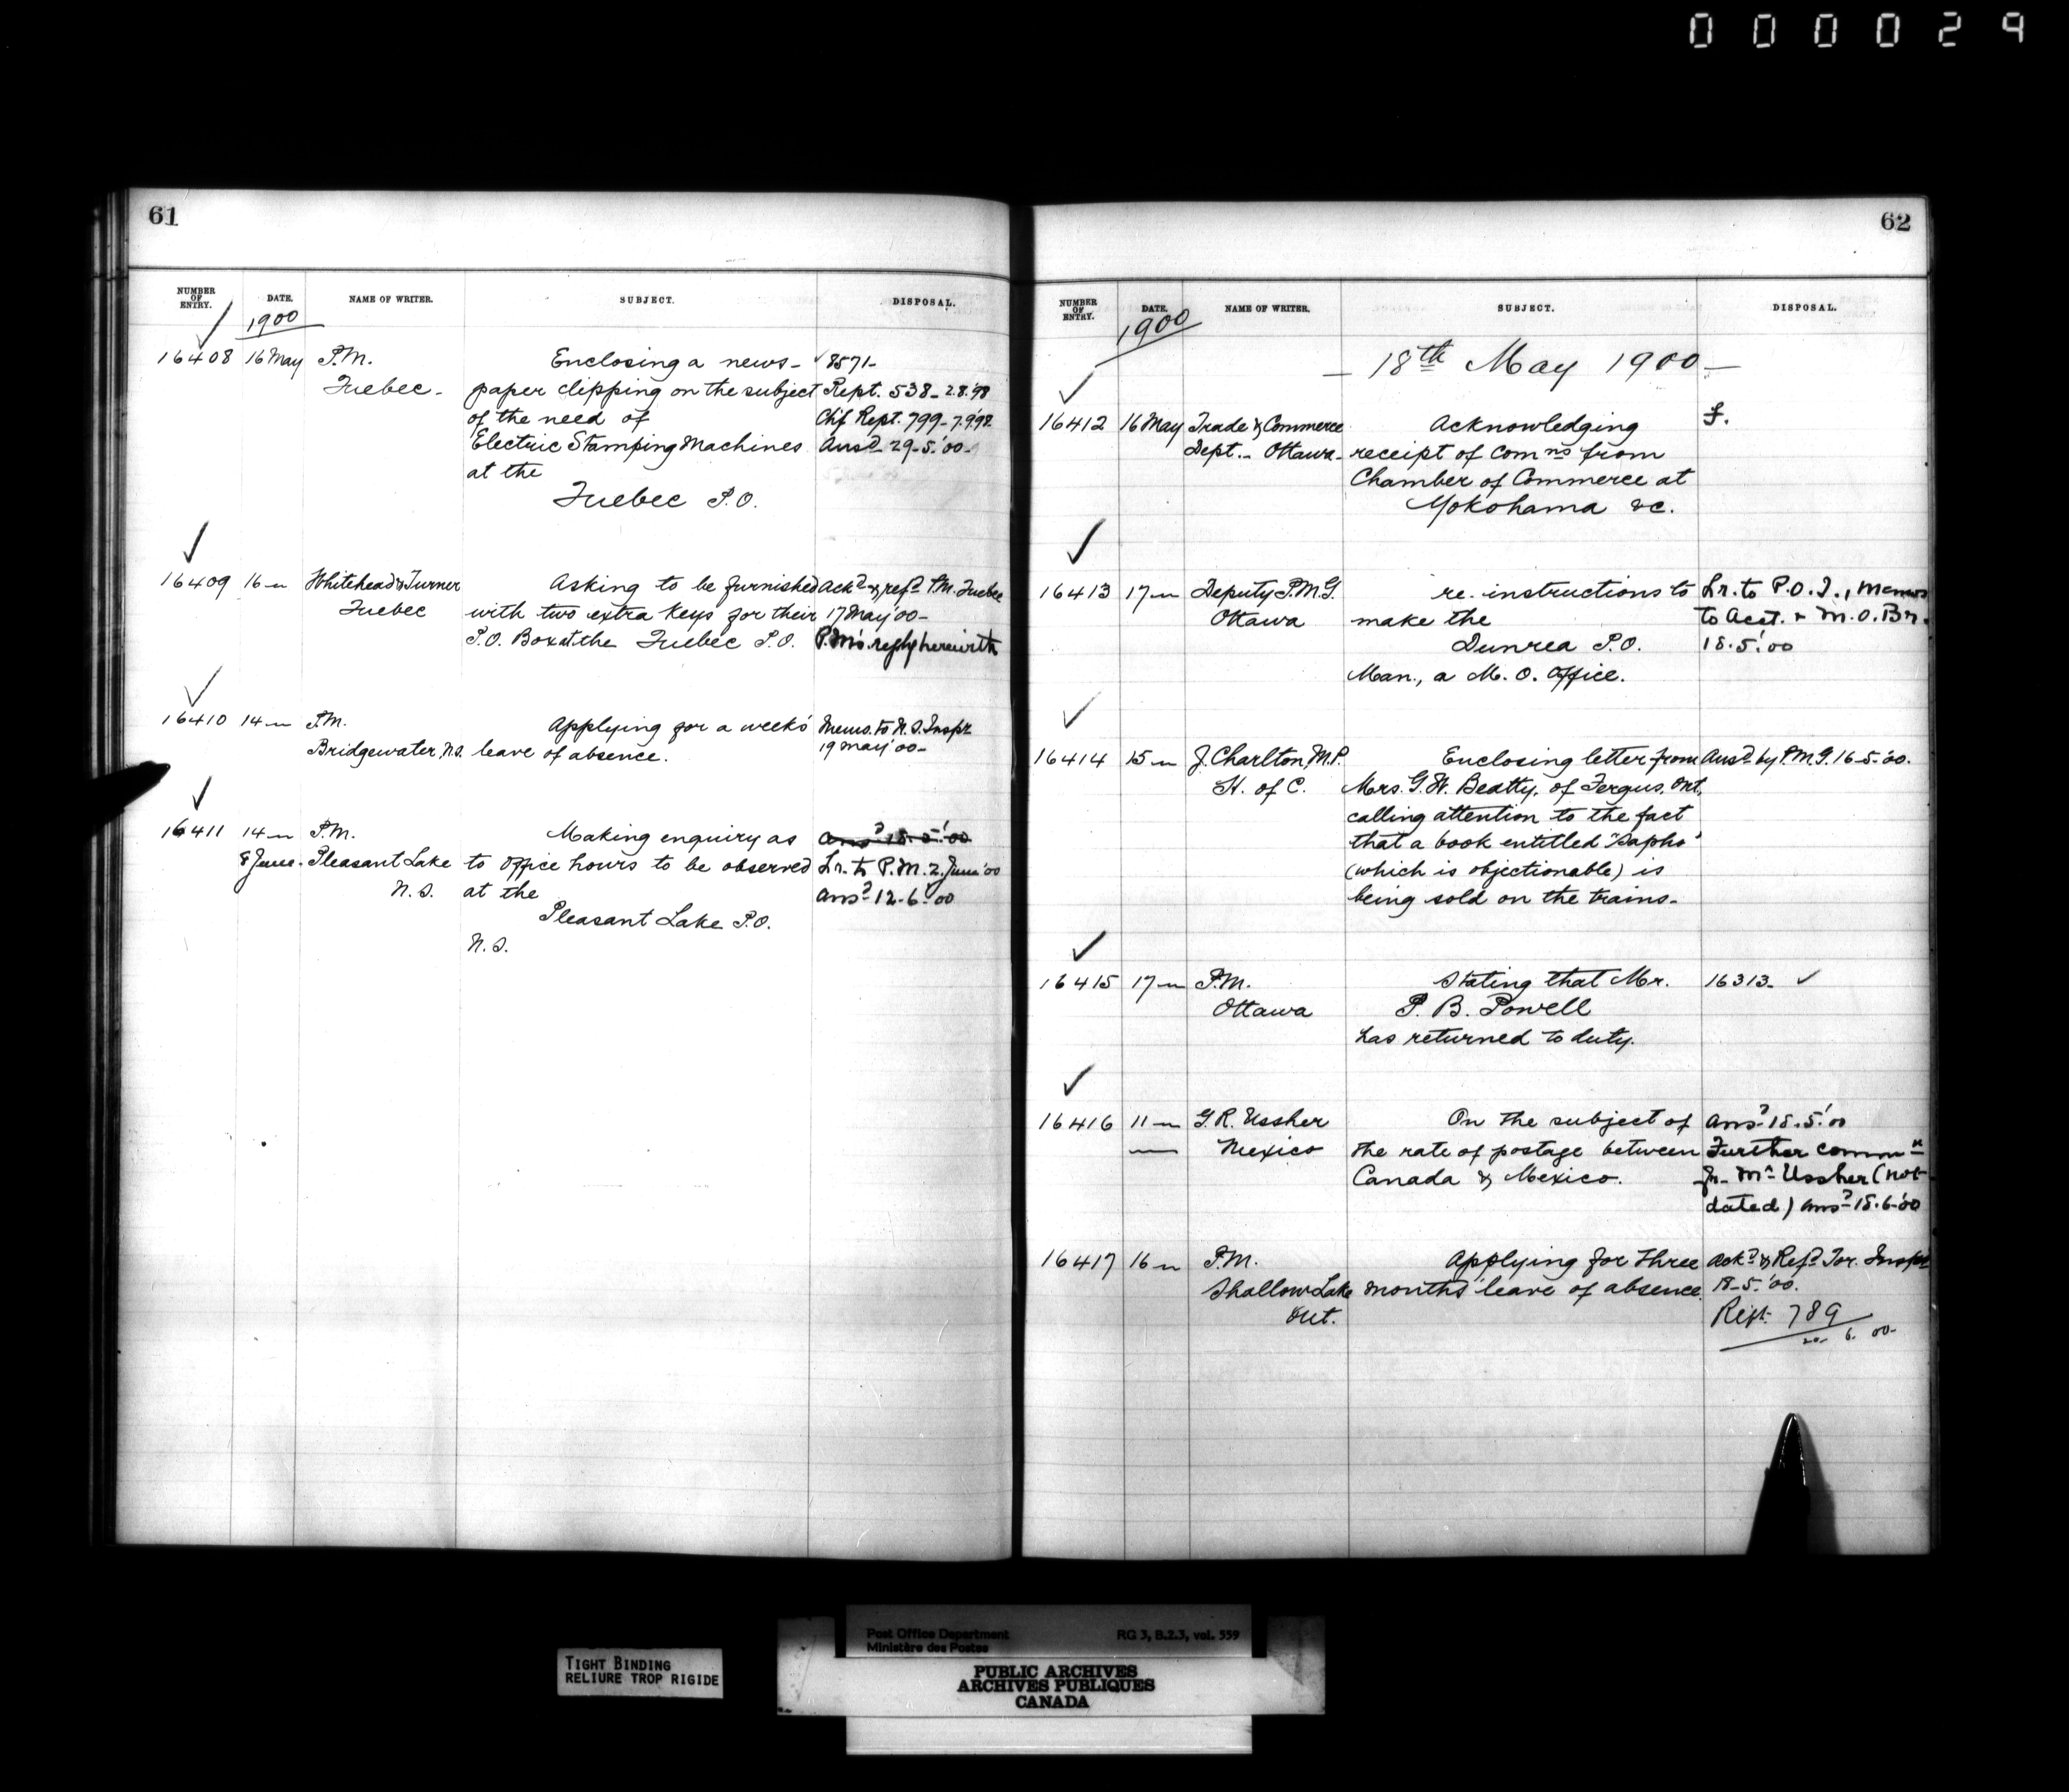 000029
61
NUMBER OF ENTRY. DATE. NAME OF WRITER. SUBJECT. DISPOSAL.
1900
16408 16 May P.M. Enclosing a news- 8571-
Quebec- paper clipping on the subject Rept. 538-2.8.'98
of the need of Chf Rept. 799-7.9.98
Electric Stamping Machines Ansd 29-5.'00-
at the
Quebec P.O.
16409 16 " Whitehead & Turner Asking to be furnished Ackd & refd P.M. Quebec
Quebec with two extra keys for their 17 May '00-
P.O. Box at the Quebec P.O. P.M's. reply herewith
16410 14 " P.M. Applying for a weeks' Memo. to N.S. Inspr
Bridgewater, N.S. leave of absence. 19 May '00-
16411 14 " P.M. Making enquiry as Ansd 18.5.'00
8 June. Pleasant Lake to office hours to be observed Lr. to P.M. 2. June '00
N.S. at the Ansd 12.6.'00
Pleasant Lake P.O.
N.S.
62
NUMBER OF ENTRY. DATE. NAME OF WRITER. SUBJECT. DISPOSAL.
1900
- 18th May 1900 -
16412 16 May Trade & Commerce Acknowledging f.
Dept.- Ottawa- receipt of Comns from
Chamber of Commerce at
Yokohama &c.
16413 17 " Deputy P.M.G. re. instructions to Lr. to P.O.I., Memos
Ottawa make the to Acct. & M.O. Br.
Dunrea P.O. 18.5.'00
Man., a M.O. Office.
16414 15 " J. Charlton, M.P. Enclosing letter from Ansd by P.M.G. 16-5-'00.
H. of C. Mrs. G.W. Beatty, of Fergus, Ont.,
calling attention to the fact
that a book entitled "Sapho"
(which is objectionable) is
being sold on the trains-
16415 17 " P.M. Stating that Mr. 16313-
Ottawa P.B. Powell
has returned to duty.
16416 11 " G.R. Ussher On the subject of Ansd 18.5.'00
Mexico the rate of postage between Further commn
Canada & Mexico. fr. Mr Ussher (not
dated) Ansd 18.6.'00
16417 16 " P.M. Applying for three Ackd & Refd Tor. Inspr
Shallow Lake months' leave of absence. 18-5-'00.
Ont. Rept. 789
20- 6. 00-
TIGHT BINDING
RELIURE TROP RIGIDE
Post Office Department RG 3, B.2.3, vol. 559
Ministère des Postes
PUBLIC ARCHIVES
ARCHIVES PUBLIQUES
CANADA